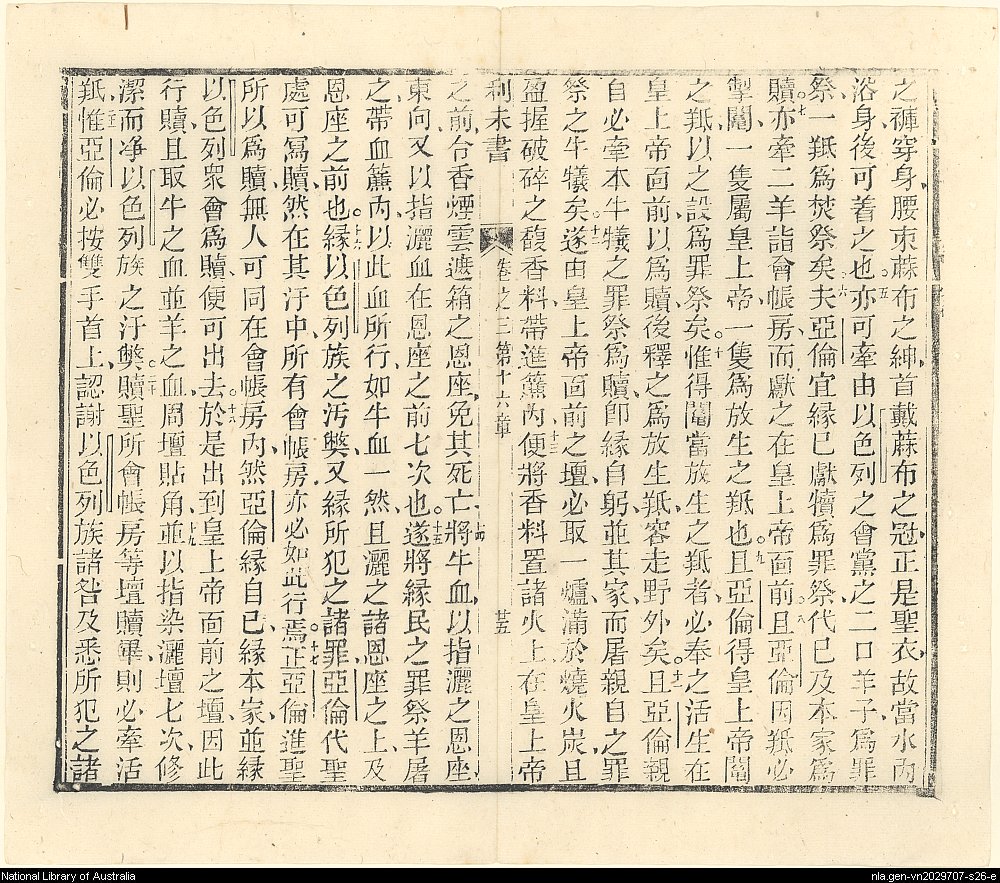 之褲穿身腰束蔴布之紳首戴蔴布之冠正是聖衣故當水內
浴身後可着之也五亦可牽由以色列之會黨之二口羊子爲罪
祭一羝爲焚祭矣六夫亞倫宜縁已獻犢爲罪祭代已及本家爲
贖七亦牽二羊詣會帳房而獻之在皇上帝面前八且亞倫因羝必
掣鬮一隻屬皇上帝一隻爲放生之羝也九且亞倫得皇上帝鬮
之羝以之設爲罪祭矣十惟得鬮當放生之羝者必奉之活生在
皇上帝面前以爲贖後釋之爲放生羝容走野外矣十一且亞倫親
自必牽本牛犧之罪祭爲贖卽縁自躬並其家而屠親自之罪
祭之牛犧矣十二遂由皇上帝面前之壇必取一爐滿於燒火炭且
盈握破碎之馥香料帶進簾內十三便將香料置諸火上在皇上帝
利未書 卷之三 第十六章 廿五
之前合香煙雲遮箱之恩座免其死亡十四將牛血以指灑之恩座
東向又以指灑血在恩座之前七次也十五遂將縁民之罪祭羊屠
之帶血簾內以此血所行如牛血一然且灑之諸恩座之上及
恩座之前也十六縁以色列族之汚獘又縁所犯之諸罪亞倫代聖
處可冩贖然在其汙中所有會帳房亦必如此行焉十七正亞倫進聖
所以爲贖無人可同在會帳房內然亞倫縁自已縁本家並縁
以色列衆會爲贖便可出去十八於是出到皇上帝面前之壇因此
行贖且取牛之血並羊之血周壇貼角十九並以指染灑壇七次修
潔而净以色列族之汙獘二十贖聖所會帳房等壇贖畢則必牽活
羝惟亞倫必按雙手首上認謝以色列族諸咎及悉所犯之諸
National Library of Australia
nla.gen-vn2029707-s26-e